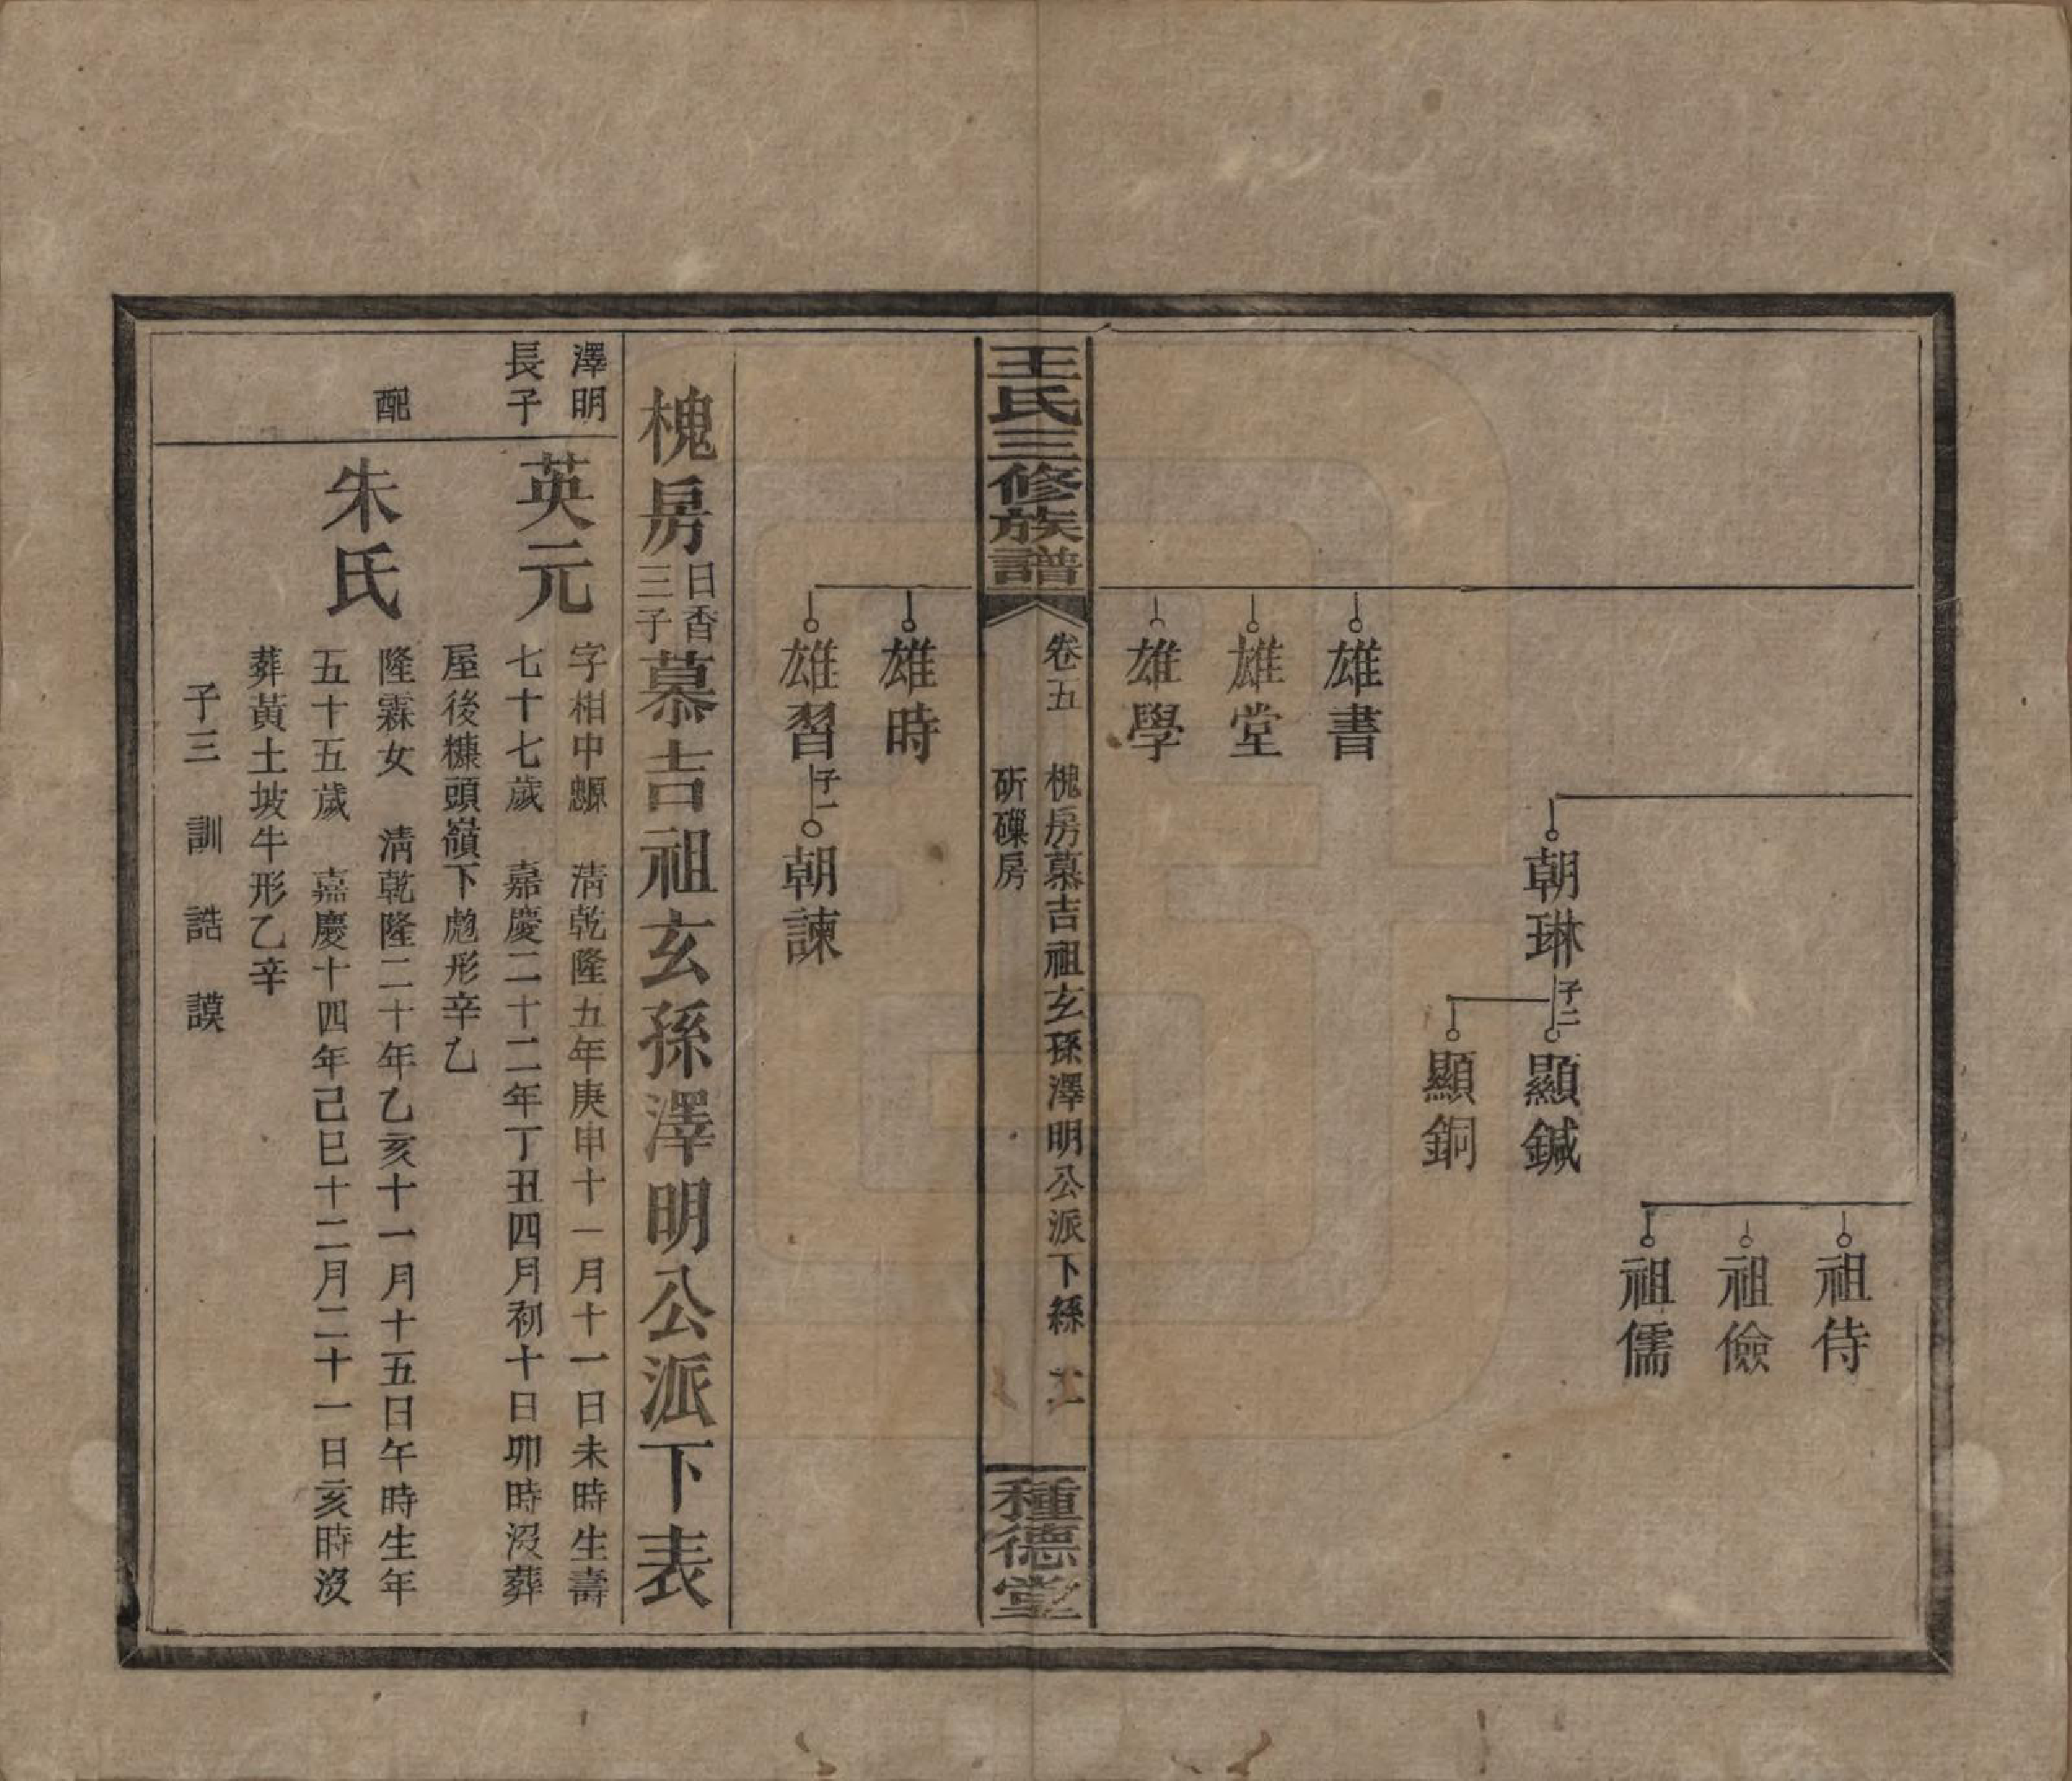 祖侍
祖儉
祖儒
朝琳
子二
顯鍼
顯銅
雄書
雄堂
雄學
王氏三修族譜
卷五 槐房慕吉祖玄孫澤明公派下系
斫磔房
種德堂
雄時
雄習
子一
朝諫
槐房日香三子慕吉祖玄孫澤明公派下表
澤明
長子
英元
字相中 清乾隆五年庚申十一月十一日未時生壽
七十七歲 嘉慶二十二年丁丑四月初十日卯時沒葬
屋後糠頭嶺下彪形辛乙
配
朱氏
隆霖女 清乾隆二十年乙亥十一月十五日午時生年
五十五歲 嘉慶十四年己巳十二月二十一日亥時沒
葬黃土坡牛形乙辛
子三 訓 誥 謨